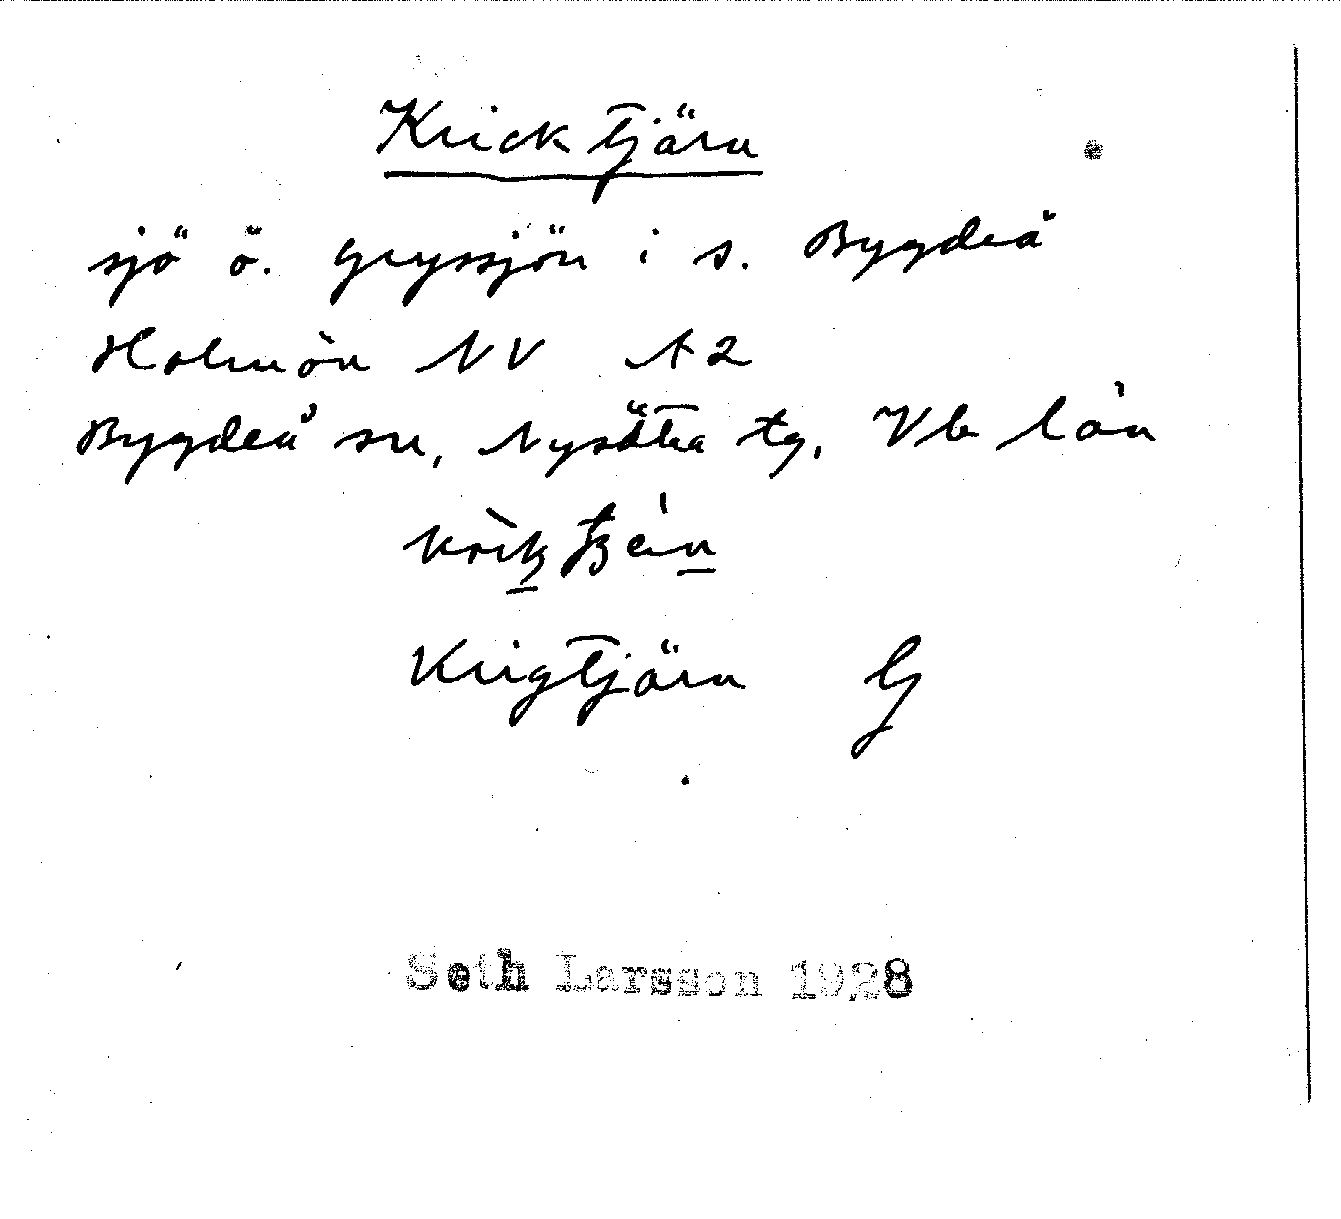 Kricktjärn
sjö ö. Gryssjön i s. Bygdeå
Holmön NV A2
Bygdeå sn, Nysätra tg, Vb län
Krigtjärn G
Seth Larsson 1928